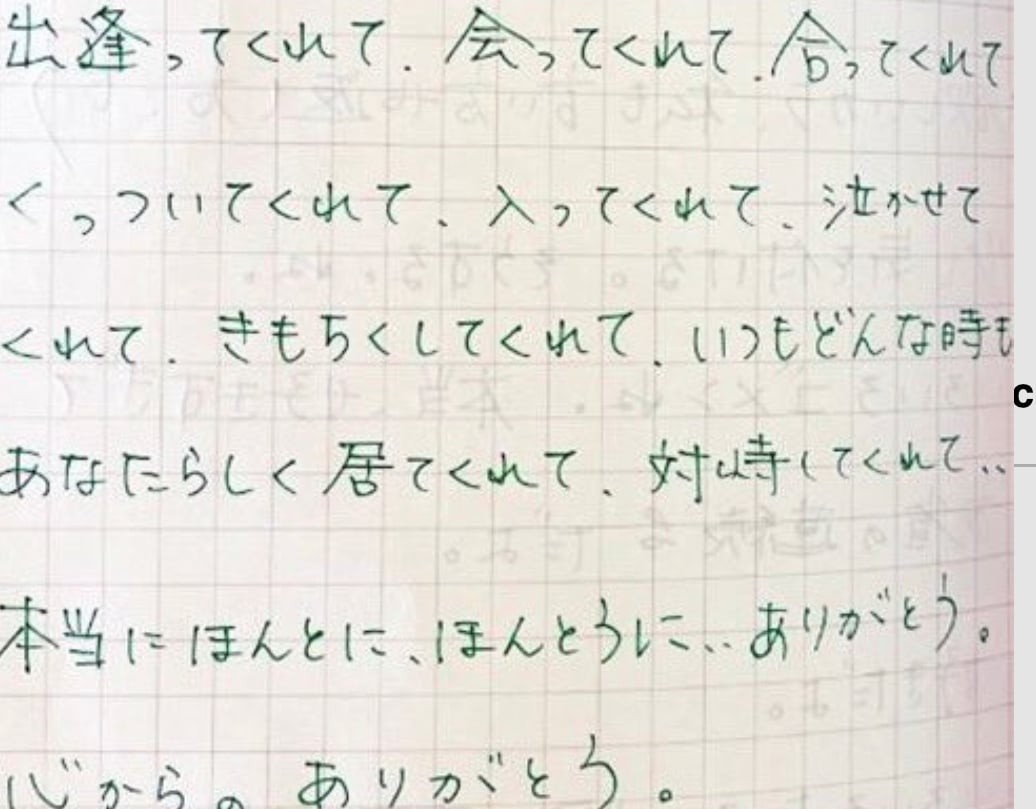 出逢ってくれて、会ってくれて、合ってくれて
くっついてくれて、入ってくれて、泣かせて
くれて、きもちくしてくれて、いつもどんな時も
あなたらしく居てくれて、対峙してくれて‥
本当にほんとに、ほんとうに‥ありがとう。
心からの ありがとう。
c